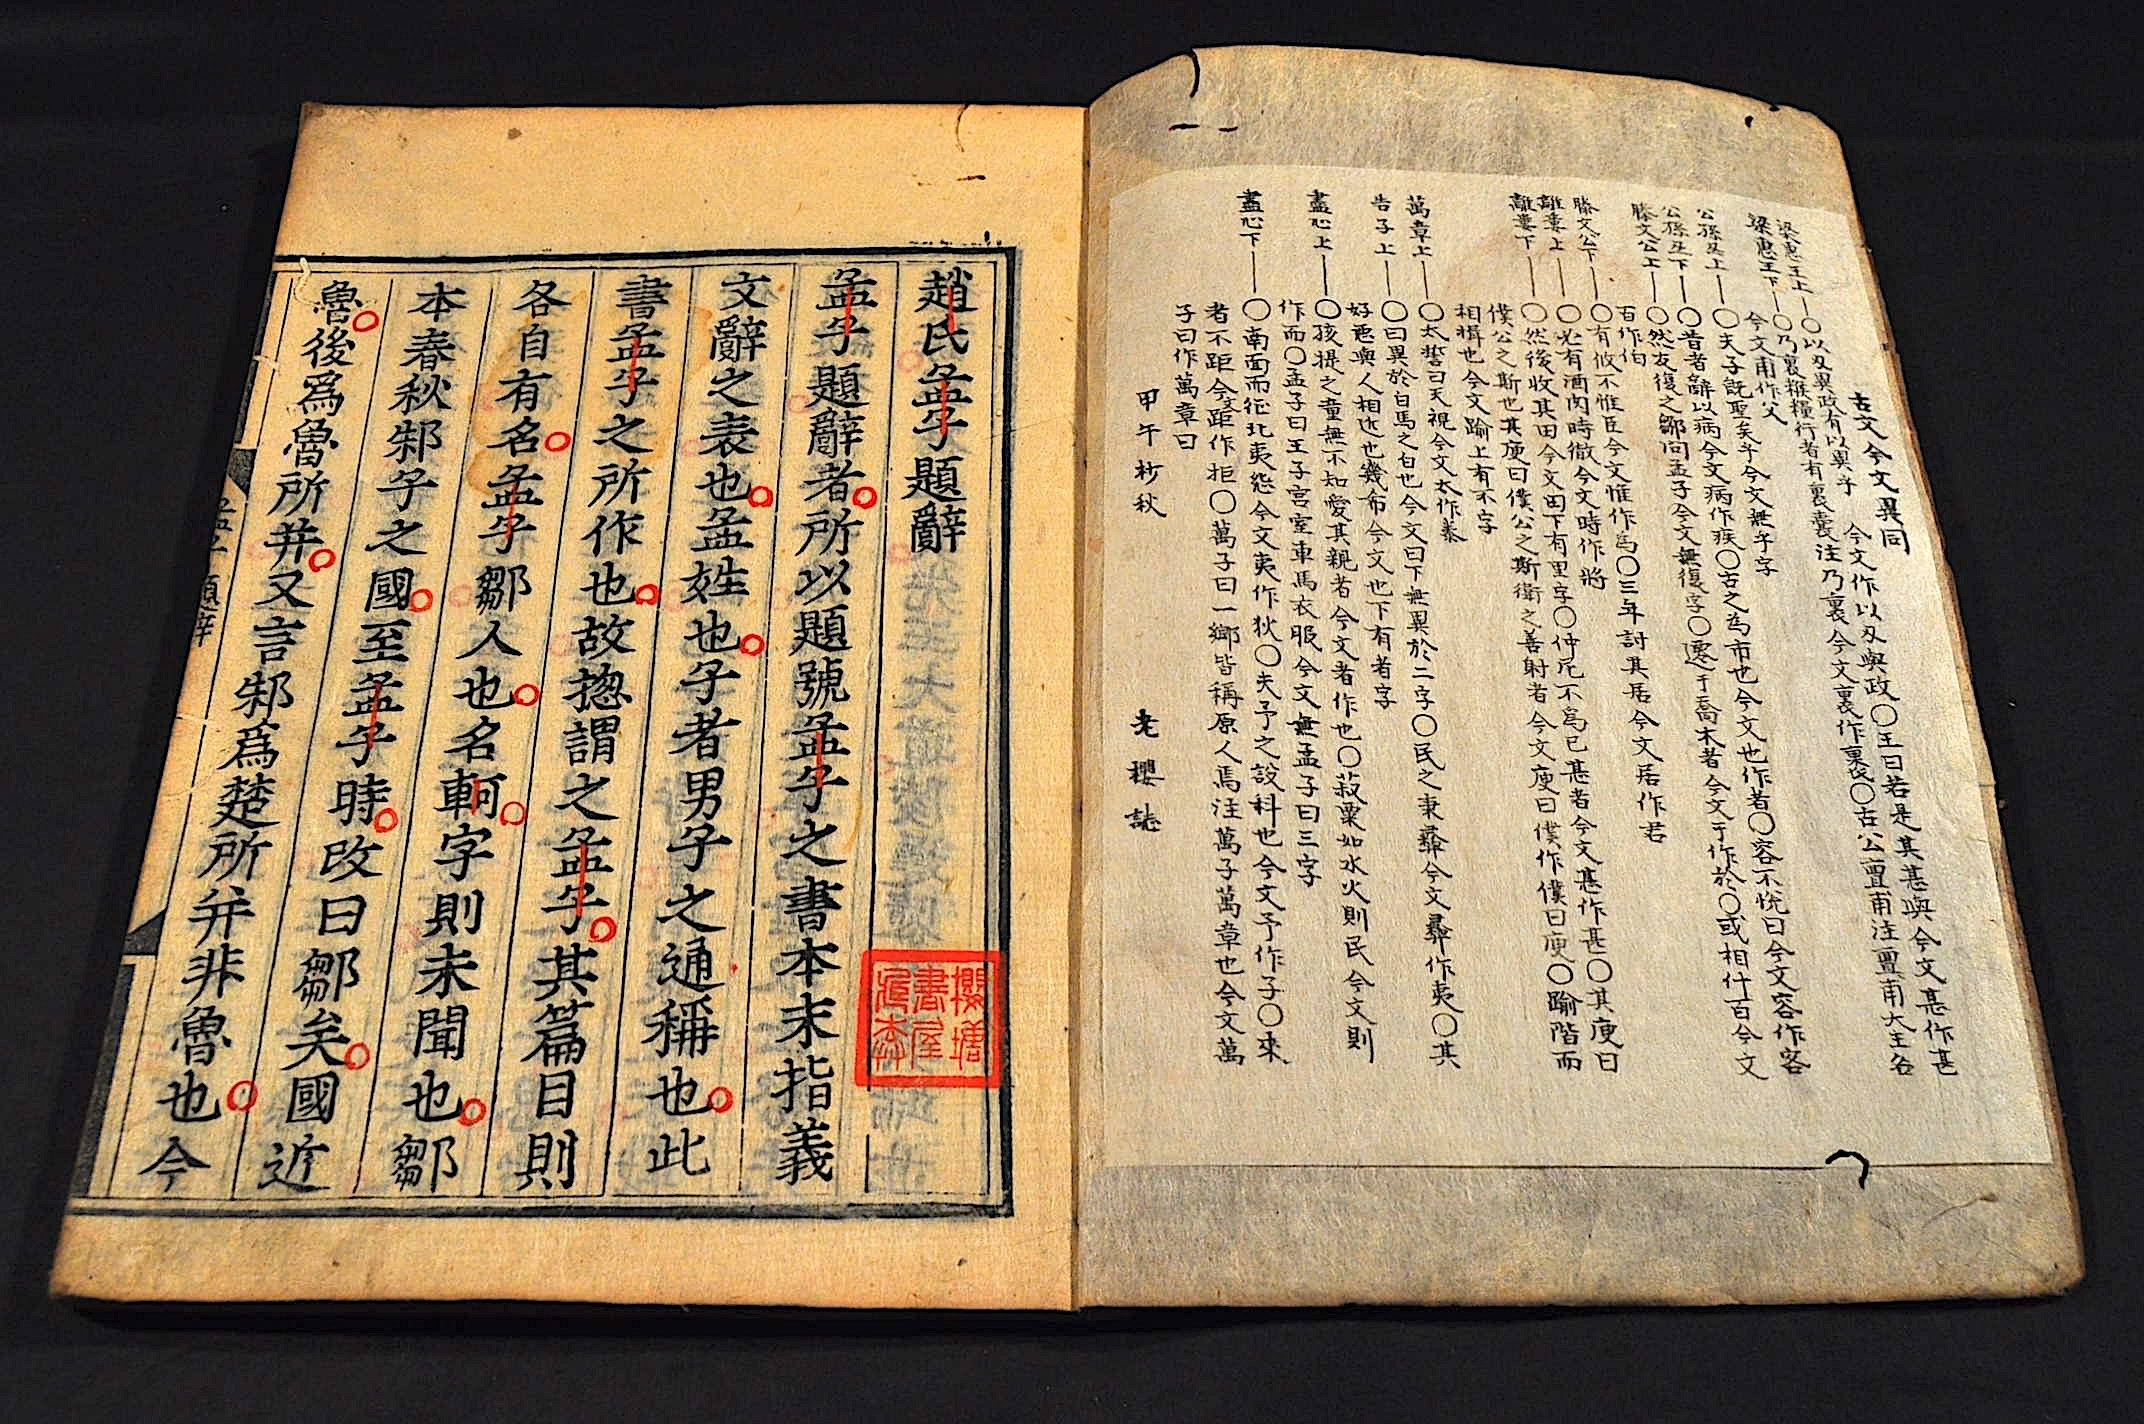 古文今文異同
梁惠王上—〇以刃與政有以異乎 今文作以刃與政〇王曰若是其甚與今文甚作甚
梁惠王下—〇乃裹糇糧行者有裹囊注乃裹今文裹作裏〇古公亶甫注亶甫大王名
今文甫作父
公孫丑上—〇夫子既聖矣乎今文無乎字
公孫丑下—〇昔者辭以病今文病作疾〇古之為市也今文也作者〇容不悅曰今文容作客
滕文公上—〇然友復之鄒問孟子今文無復字〇遷于喬木者今文于作於〇或相什百今文
百作伯
滕文公下—〇有攸不惟臣今文惟作為〇三年討其居今文居作君
離婁上—〇必有酒肉時徹今文時作將
離婁下—〇然後收其田今文田下有里字〇仲尼不為已甚者今文甚作甚〇其庾曰
僕公之斯也其庾曰僕公之斯衛之善射者今文庾曰僕作僕曰庾〇踰階而
相揖也今文踰上有不字
萬章上—〇太誓曰天視今文太作泰
告子上—〇曰異於白馬之白也今文曰下無異於二字〇民之秉彝今文彝作夷〇其
好惡與人相近也幾希今文也下有者字
盡心上—〇孩提之童無不知愛其親者今文者作也〇菽粟如水火則民今文則
作而〇孟子曰王子宮室車馬衣服今文無孟子曰三字
盡心下—〇南面而征北夷怨今文夷作狄〇夫予之設科也今文予作子〇來
者不距今文距作拒〇萬子曰一鄉皆稱原人焉注萬子萬章也今文萬
子曰作萬章曰
甲午杪秋 老櫻誌
趙氏孟子題辭
櫻塘
書屋
孟子題辭者所以題號孟子之書本末指義
文辭之表也孟姓也子者男子之通稱也此
書孟子之所作也故揔謂之孟子其篇目則
各自有名孟子鄒人也名軻字則未聞也鄒
本春秋邾子之國至孟子時改曰鄒矣國近
魯後爲魯所并又言邾爲楚所并非魯也今
孟子題辭